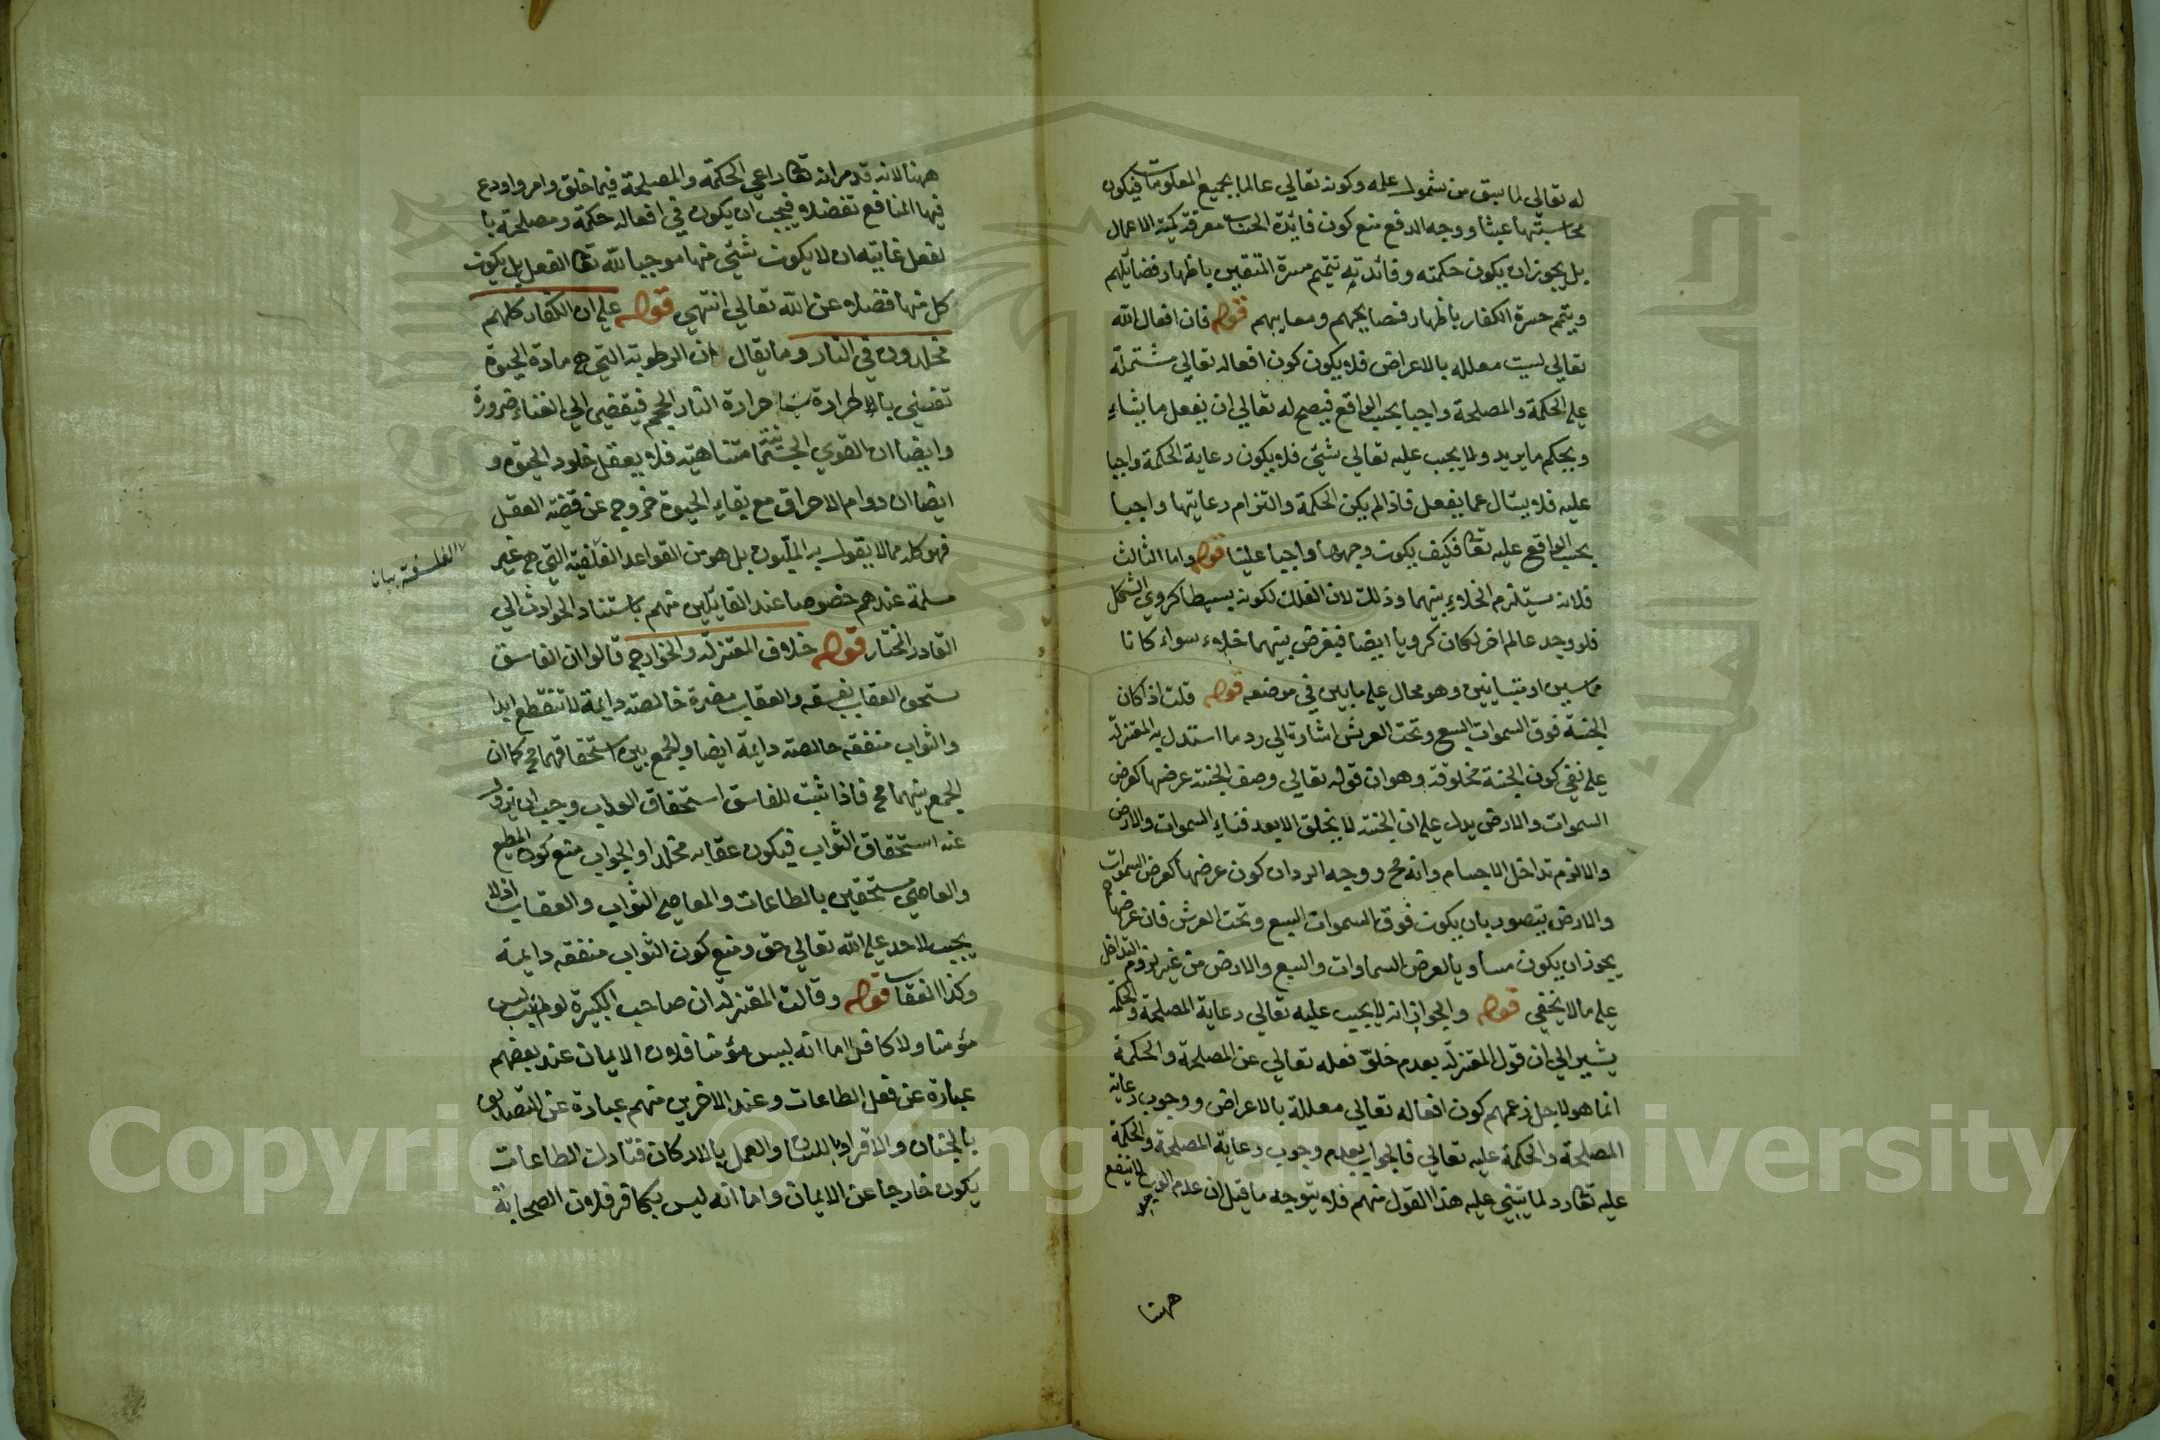 له تعالي لما سبق من شمول علمه وكونه تعالي عالما بجميع المعلومات فيكون
محاسبتها عبثا ووجه الدفع منع كون فايدة الحساب معرفة كمية الاعمال
بل يجوز ان يكون حكمته وفائدته تتميم مسرة المتقين باظهار فضايلهم
ويتمم حسرة الكفار باظهار فضايحهم ومعايبهم قوله فان افعال الله
تعالي ليست معللة بالاعراض فلا يكون كون افعاله تعالي مشتملة
علي الحكمة والمصلحة واجبا بحسب الواقع فيصح له تعالي ان يفعل ما يشاء
ويحكم ما يريد ولا يجب عليه تعالي شئ فلا يكون رعاية الحكمة واجبا
عليه فلا يسئال عما يفعل فاذا لم يكن الحكمة والتزام رعايتها واجبا
بحسب الواقع عليه تعا فكيف يكون وجهها واجبا علينا قوله واما الثالث
فلانه يستلزم الخلاء بينهما وذلك لان الفلك لكونه بسيطا كروي الشكل
فلو وجد عالم اخر لكان كرويا ايضا فيفرض بينهما خلاء سواء كانا
مماسين او متباينين وهو محال علي ما بين في موضعه قوله قلت اذا كان
الجنة فوق السموات السبع وتحت العرش اشارة الي رد ما استدل به المعتزلة
علي نفي كون الجنة مخلوقة وهو ان قوله تعالي وصف الجنة عرضها كعرض
السموات والارض يدل علي ان الجنة لا يخلق الا بعد فناء السموات والارض
والا لزم تداخل الاجسام وانه مح ووجه الرد ان كون عرضها كعرض السموات
والارض يتصور بان يكون فوق السموات السبع وتحت العرش فان عرضها
يجوز ان يكون مساويا لعرض السماوات والسبع والارض من غير لزوم التداخل
علي ما لا يخفي قوله والجواب انه لا يجب عليه تعالي رعاية المصلحة والحكمة
يشير الي ان قول المعتزلة بعدم خلو فعله تعالي عن المصلحة والحكمة
انما هو لاجل زعمهم كون افعاله تعالي معللة بالاعراض ووجوب رعاية
المصلحة والحكمة عليه تعالي فالجواب بعدم وجوب رعاية المصلحة والحكمة
عليه تعا رد لما يبتني عليه هذا القول منهم فلا يتوجه ما قيل ان عدم الوجوب لا ينفع
ههنا
ههنا لانه قد مر انه تعا راعي الحكمة والمصلحة فيما خلق وامر واودع
فيها المنافع تفضلا فيجب ان يكون في افعاله حكمة ومصلحة با
لفعل غايته ان لا يكون شئ منها موجبا لله تعا الفعل بل يكون
كل منها فضلا عن الله تعالي انتهي قوله علي ان الكفار كلهم
مخلدون في النار وما يقال ان الرطوبة التي هي مادة الحيوة
تفني بالحرارة سيما حرارة النار الجحيم فيفضي الي الفناء ضرورة
وايضا ان القوي الجسمانية متناهية فلا يعقل خلود الحيوة و
ايضا ان دوام الاحراق مع بقاء الحيوة خروج عن قضية العقل
فهو كله مما لا يقول به المليون بل هو من القواعد الفلسفية التي هي غير
الفلسفة بيان
مسلمة عندهم خصوصا عند القايلين منهم باستناد الحوادث الي
القادر المختار قوله خلاف المعتزلة والخوارج قالوا ان الفاسق
يستحق العقاب بفسقه والعقاب مضرة خالصة دايمة لا تنقطع ابدا
والثواب منفعة خالصة دايمة ايضا والجمع بين استحقاقهما مح كما ان
الجمع بينهما مح فاذا ثبت للفاسق استحقاق العذاب وجب ان يزول
عنه استحقاق الثواب فيكون عقابه مخلدا والجواب منع كون المطيع
والعاصي مستحقين بالطاعات والمعاصي الثواب والعقاب اذ لا
يجب لاحد علي الله تعالي حق ومنع كون الثواب منفعة دايمة
وكذا العقاب قوله وقالت المعتزلة ان صاحب الكبيرة لو لم يتب ليس
مؤمنا ولا كافرا اما انه ليس مؤمنا فلان الايمان عند بعضهم
عبارة عن فعل الطاعات وعند الاخرين منهم عبارة عن التصديق
بالجنان والاقرار باللسان والعمل بالاركان فتارك الطاعات
يكون خارجا عن الايمان واما انه ليس بكافر فلان الصحابة
Copyright © King Saud University